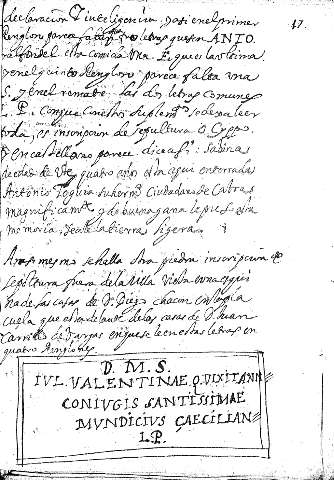 declaracion e inteligencia, y asi en el primer
Renglon parece falta letras que son ANTO.
ra al fin del esta comida una E. que es la ultima
y en el quinto Renglon parece falta una
S. y en el remate las dos letras comunes
L. P. con que con estos suplem.tos se deve leer
es inscripcion de sepultura o Cypo.
y en castellano parece dice asi: Sabina
de edad de Vte y quatro años esta aqui enterrada
Antonio su herm.o Ciudadano de Cabra
magnificam.te y de buena gana le puso esta
memoria, sea te la tierra ligera.
47.
Assi mesmo se halla otra piedra inscripcion de
sepoltura fuera de la Villa Vieja en una esqui
na de las casas de D. Diego chacon en la pla
cuela que esta delante de las casas de D. Juan
Carrillo de Vargas en que se leen estas letras en
quatro Renglones
D. M. S.
IVL. VALENTINAE. Q. VIXIT ANN
CONIVGIS SANTISSIMAE
MVNDICIVS CAECILIAN
L.P.